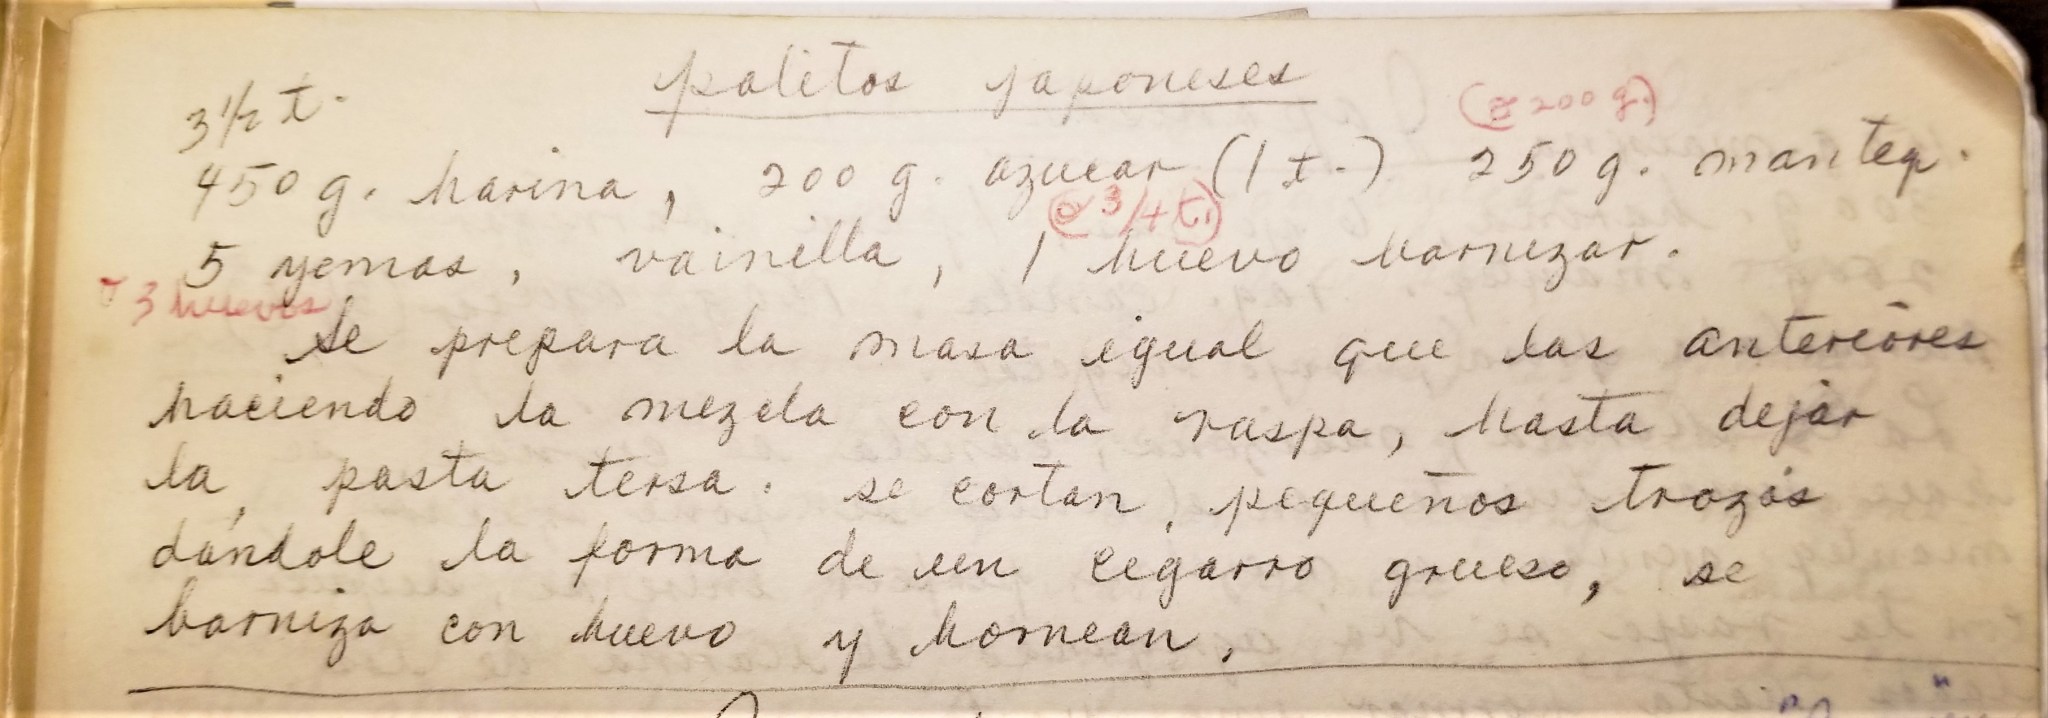 palitos japoneses
3 1/2 t.
(o 200 g.)
450 g. harina, 200 g. azucar (1 t.) 250 g. manteq.
(o 3/4 t.)
5 yemas, vainilla, 1 huevo barnizar.
o 3 huevos
se prepara la masa igual que las anteriores
haciendo la mezcla con la raspa, hasta dejar
la pasta tersa. se cortan pequeños trozos
dándole la forma de un cigarro grueso, se
barniza con huevo y hornean.